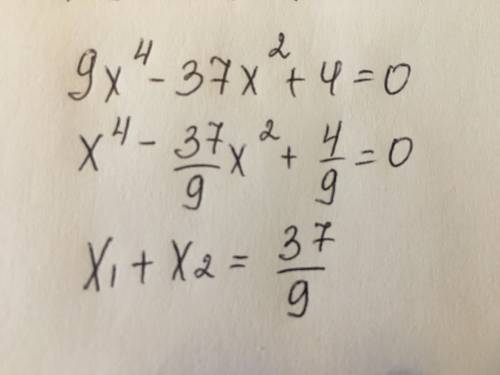 9x⁴ - 37x² + 4 = 0
x⁴ - 37/9 x² + 4/9 = 0
x₁ + x₂ = 37/9